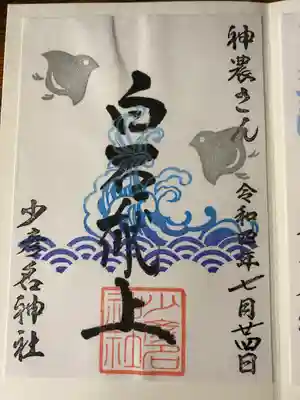 神農さん 令和四年七月廿四日
白
上
少彦名神社
少彦名
神社